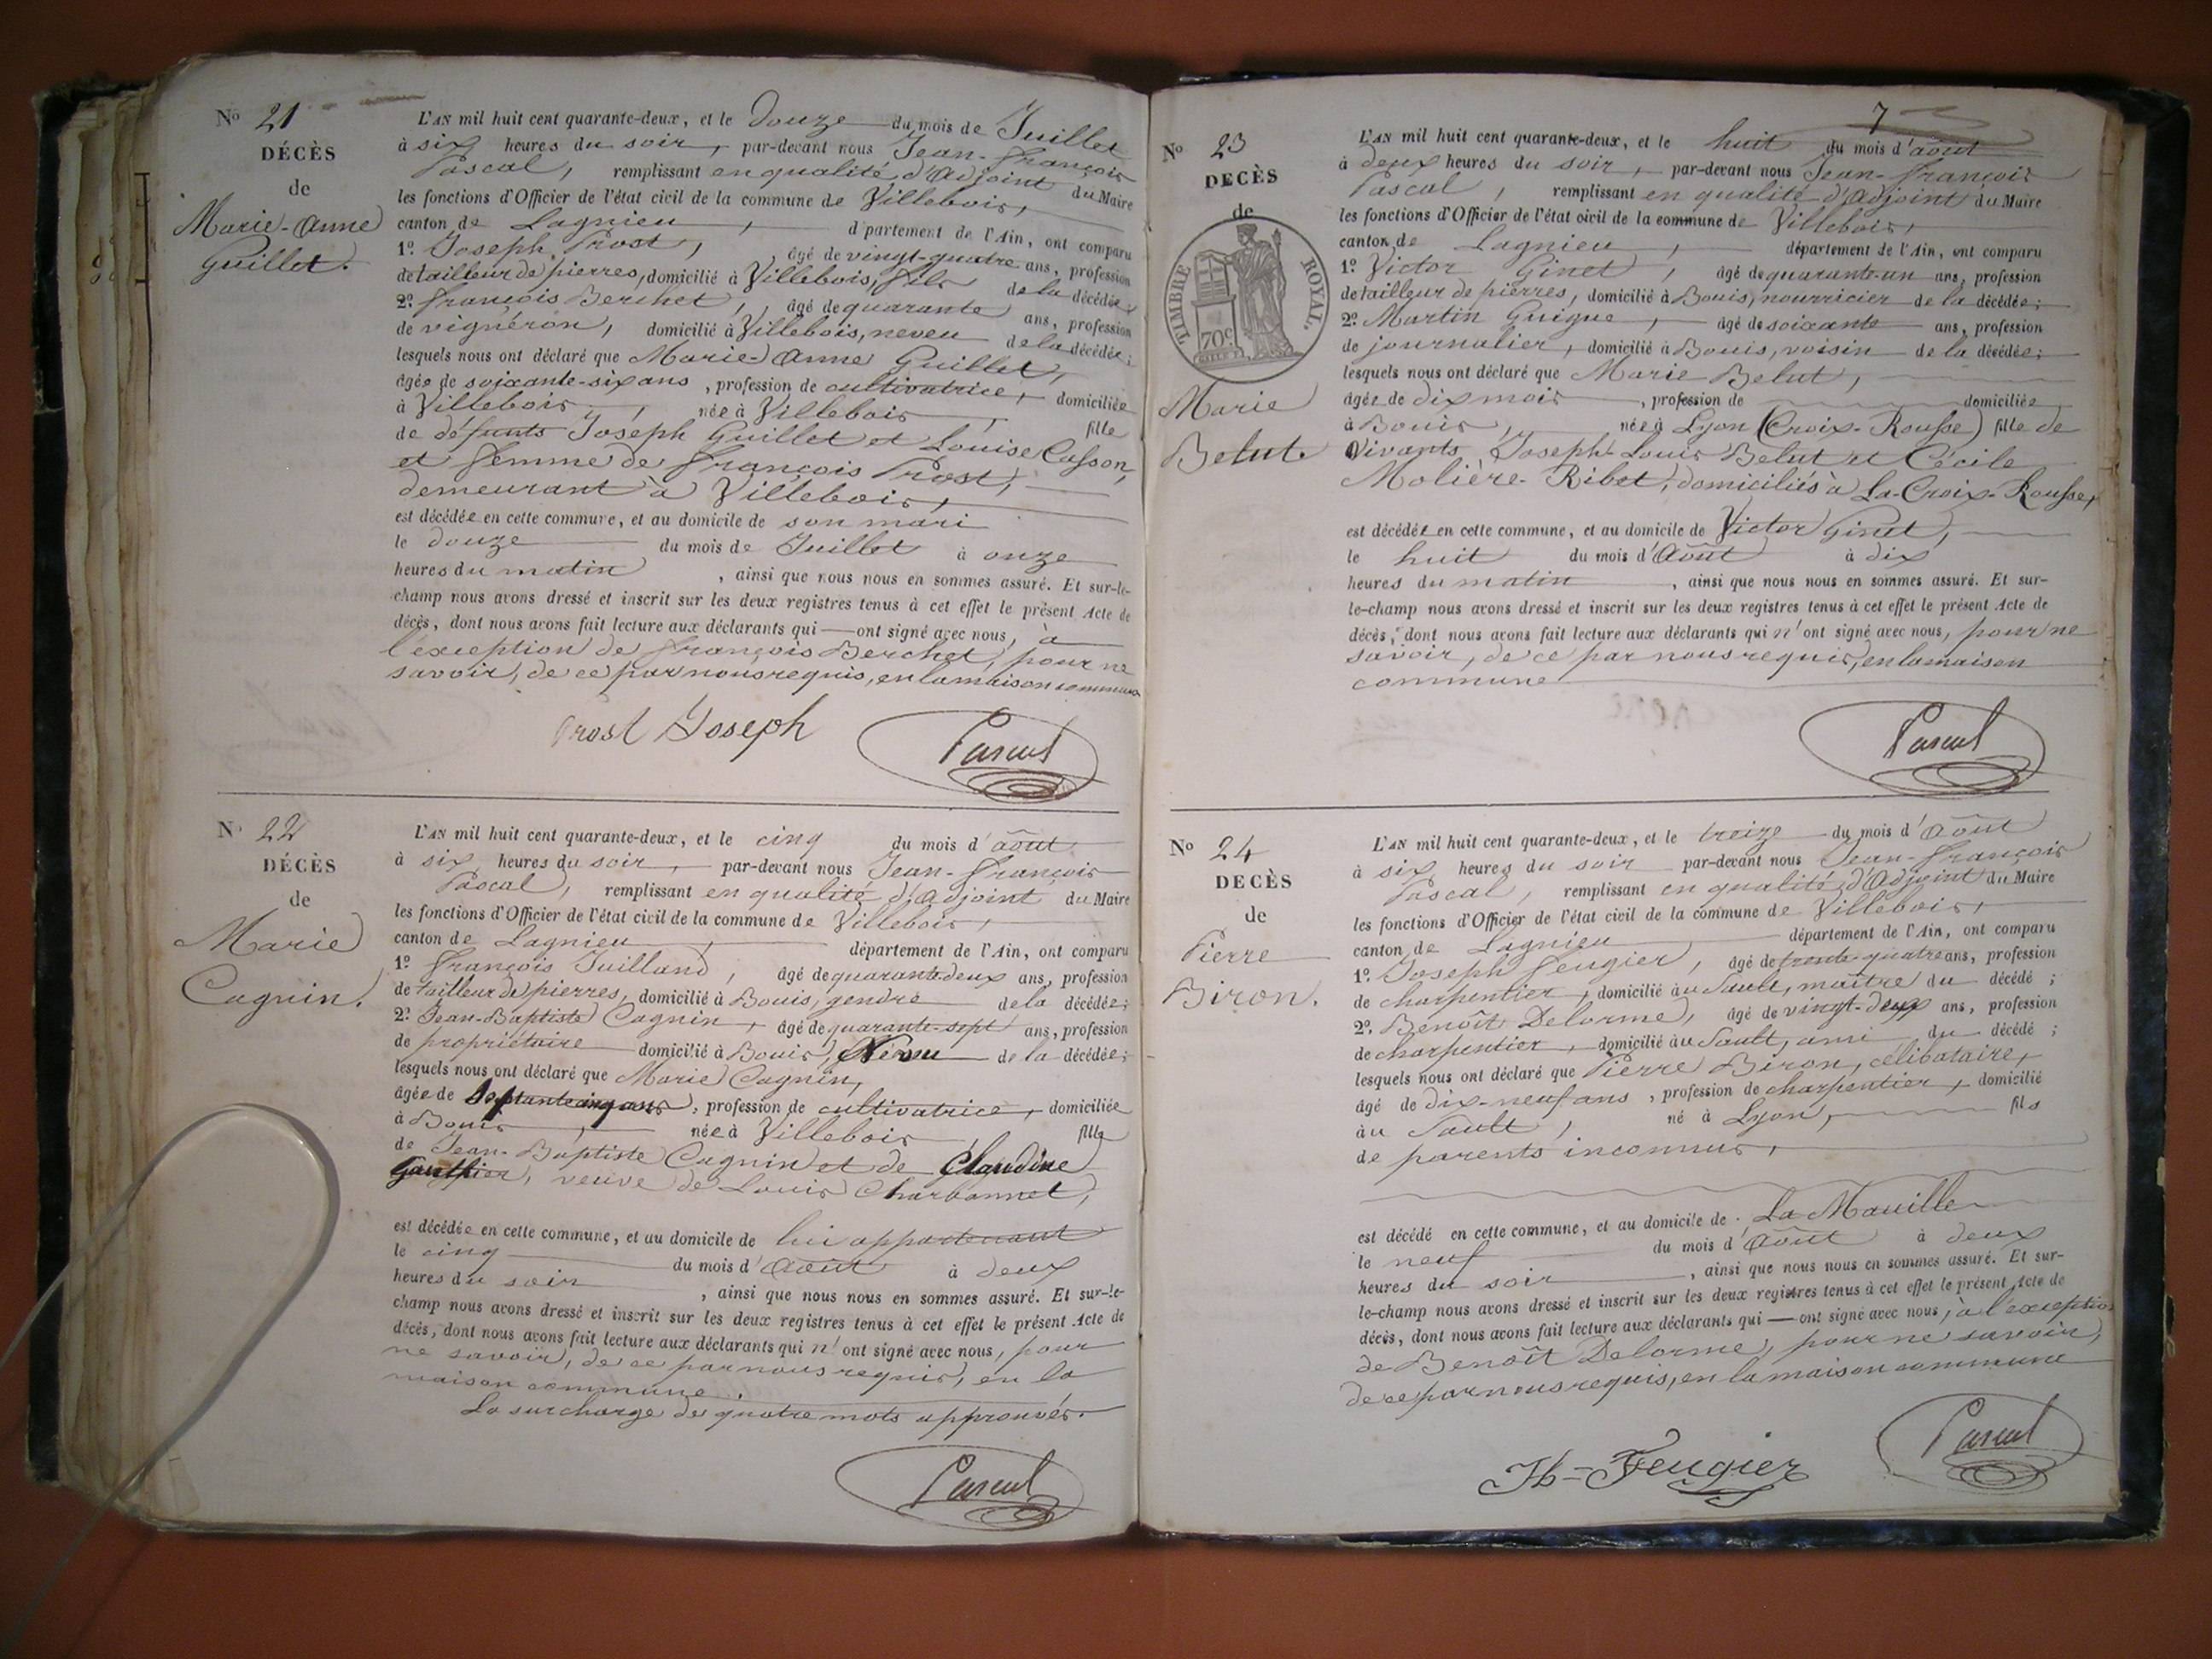 Nº 21
DÉCÈS
de
Marie-Anne
Guillet.
L'AN mil huit cent quarante-deux, et le douze du mois de Juillet
à six heures du soir, par-devant nous Jean-François
Pascal, remplissant en qualité d'Adjoint du Maire
les fonctions d'Officier de l'état civil de la commune de Villebois,
canton de Lagnieu, département de l'Ain, ont comparu
1º. Joseph Prost, âgé de vingt-quatre ans, profession
de tailleur de pierres, domicilié à Villebois, fils de la décédée;
2º. François Berchet, âgé de quarante ans, profession
de vignéron, domicilié à Villebois, neveu de la décédée;
lesquels nous ont déclaré que Marie-Anne Guillet,
âgée de soixante-six ans, profession de cultivatrice, domiciliée
à Villebois, née à Villebois, fille
de défunts Joseph Guillet et Louise Casson,
et femme de François Prost,
demeurant à Villebois,
est décédée en cette commune, et au domicile de son mari
le douze du mois de Juillet à onze
heures du matin, ainsi que nous nous en sommes assuré. Et sur-le-
champ nous avons dressé et inscrit sur les deux registres tenus à cet effet le présent Acte de
décès, dont nous avons fait lecture aux déclarants qui ont signé avec nous, à
l'exception de François Berchet, pour ne
savoir, de ce par nous requis, en la maison commune
Prost Joseph
Pascal
Nº 22
DÉCÈS
de
Marie
Cagnin.
L'AN mil huit cent quarante-deux, et le cinq du mois d'août
à six heures du soir, par-devant nous Jean-François
Pascal, remplissant en qualité d'Adjoint du Maire
les fonctions d'Officier de l'état civil de la commune de Villebois,
canton de Lagnieu, département de l'Ain, ont comparu
1º. François Juilland, âgé de quarante-deux ans, profession
de tailleur de pierres, domicilié à Bouis, gendre de la décédée;
2º. Jean-Baptiste Cagnin, âgé de quarante-sept ans, profession
de propriétaire domicilié à Bouis, Néveu de la décédée;
lesquels nous ont déclaré que Marie Cagnin,
âgée de Septante cinq ans, profession de cultivatrice, domiciliée
à Bouis, née à Villebois, fille
de Jean-Baptiste Cagnin et de Claudine
Gauthier, veuve de Louis Charbonnet,
est décédée en cette commune, et au domicile de lui appartenant
le cinq du mois d'Août à deux
heures du soir, ainsi que nous nous en sommes assuré. Et sur-le-
champ nous avons dressé et inscrit sur les deux registres tenus à cet effet le présent Acte de
décès, dont nous avons fait lecture aux déclarants qui n'ont signé avec nous, pour
ne savoir, de ce par nous requis, en la
maison commune.
La surcharge des quatre mots approuvés.
Pascal
7
Nº 23
DÉCÈS
de
TIMBRE ROYAL.
70c
Marie
Belut.
L'AN mil huit cent quarante-deux, et le huit du mois d'août
à deux heures du soir, par-devant nous Jean-François
Pascal, remplissant en qualité d'Adjoint du Maire
les fonctions d'Officier de l'état civil de la commune de Villebois,
canton de Lagnieu, département de l'Ain, ont comparu
1º. Victor Ginet, âgé de quarante-un ans, profession
de tailleur de pierres, domicilié à Bouis, nourricier de la décédée;
2º. Martin Guigue, âgé de soixante ans, profession
de journalier, domicilié à Bouis, voisin de la décédée;
lesquels nous ont déclaré que Marie Belut,
âgée de dix mois, profession de domiciliée
à Bouis, née à Lyon (Croix-Rousse) fille de
Vivants Joseph-Louis Belut et Cécile
Molière-Ribet, domiciliés à La-Croix-Rousse,
est décédée en cette commune, et au domicile de Victor Ginet,
le huit du mois d'Août à dix
heures du matin, ainsi que nous nous en sommes assuré. Et sur-
le-champ nous avons dressé et inscrit sur les deux registres tenus à cet effet le présent Acte de
décès, dont nous avons fait lecture aux déclarants qui n'ont signé avec nous, pour ne
savoir, de ce par nous requis, en la maison
commune
Pascal
Nº 24
DÉCÈS
de
Pierre
Biron.
L'AN mil huit cent quarante-deux, et le treize du mois d'Août
à six heures du soir par-devant nous Jean-François
Pascal, remplissant en qualité d'Adjoint du Maire
les fonctions d'Officier de l'état civil de la commune de Villebois,
canton de Lagnieu département de l'Ain, ont comparu
1º. Joseph Feugier, âgé de trente-quatre ans, profession
de charpentier, domicilié au Sault, maître du décédé;
2º. Benoît Delorme, âgé de vingt-deux ans, profession
de charpentier, domicilié au Sault, ami du décédé;
lesquels nous ont déclaré que Pierre Biron, célibataire,
âgé de dix-neuf ans, profession de charpentier, domicilié
au Sault, né à Lyon, fils
de parents inconnus,
est décédé en cette commune, et au domicile de La Mouille
le neuf du mois d'Août à deux
heures du soir, ainsi que nous nous en sommes assuré. Et sur-
le-champ nous avons dressé et inscrit sur les deux registres tenus à cet effet le présent Acte de
décès, dont nous avons fait lecture aux déclarants qui ont signé avec nous, à l'exception
de Benoît Delorme, pour ne savoir,
de ce par nous requis, en la maison commune
Jh=Feugier
Pascal